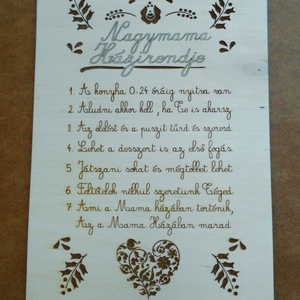 Nagymama
Házirendje
1. A konyha 0-24 óráig nyitva van
2. Aludni akkor kell, ha Te is akarsz
3. Az ölelést és a puszit tűrd és szeresd
4. Lehet a desszert is az első fogás
5. Játszani sokat és mégtöbbet lehet
6. Feltételek nélkül szeretünk Téged
7. Ami a Mama házában történik,
Az a Mama Házában marad